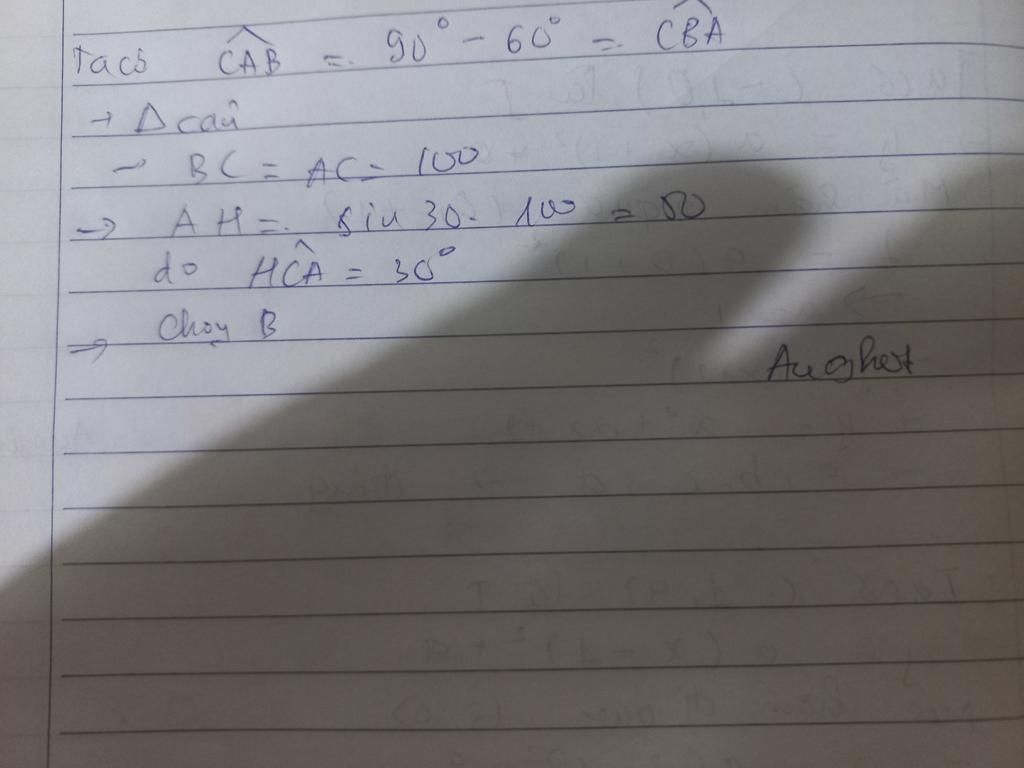 Ta có CAB = 90° - 60° = CBA
→ Δ cân
→ BC = AC = 100
→ AH = sin 30. 100 = 50
do HCA = 30°
→ Chọn B
Aughet